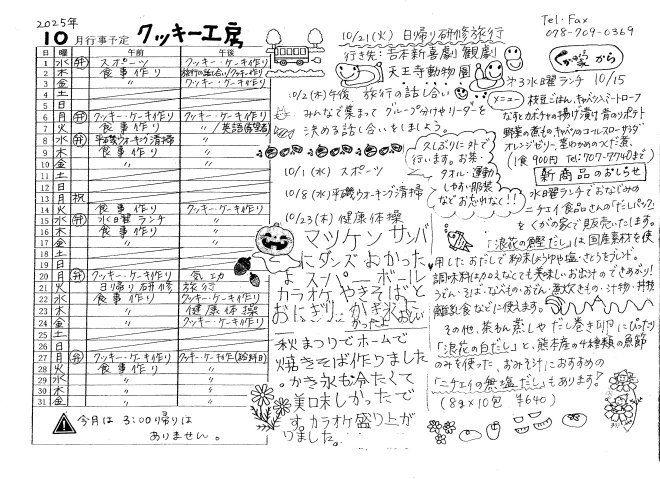 2025年
10月行事予定 クッキー工房
日 曜 午前 午後
1 水 弁 スポーツ クッキー・ケーキ作り
2 木 食事作り 旅行の話し合い/クッキー作り
3 金 〃 クッキー・ケーキ作り
4 土
5 日
6 月 弁 クッキー・ケーキ作り クッキー・ケーキ作り
7 火 食事作り 〃 英語(希望者)
8 水 弁 平磯ウォーキング清掃 〃
9 木 食事作り 〃
10 金 〃 〃
11 土
12 日
13 月 祝
14 火 食事作り クッキー・ケーキ作り
15 水 弁 水曜ランチ クッキー・ケーキ作り
16 木 食事作り 〃
17 金 〃 〃
18 土
19 日
20 月 弁 クッキー・ケーキ作り 気功
21 火 日帰り研修 旅行
22 水 食事作り クッキー・ケーキ作り
23 木 〃 健康体操
24 金 〃 クッキー・ケーキ作り
25 土
26 日
27 月 弁 クッキー・ケーキ作り クッキー・ケーキ作(給料日)
28 火 食事作り 〃
29 水 〃 〃
30 木 〃 〃
31 金 〃 〃
今月は 3:00帰りは
ありません。
10/21(火) 日帰り研修旅行
行き先:吉本新喜劇 観劇
天王寺動物園
10/2(木)午後 旅行の話し合い
みんなで集まって グループ分けやリーダーを
決める話し合いをしましょう。
10/1(水) スポーツ
10/8(水)平磯ウォーキング清掃
久しぶりに外で
行います。お茶・
タオル・運動
しやすい服装
などお忘れなく!!
10/23(木)健康体操
マツケンサンバ
にダンスよかった
よスーパーボール
カラオケやきそばと
おにぎり かき氷に
かったよ おいし
秋まつりでホームで
焼きそば作りました
。かき氷も冷たくて
美味しかったで
す。カラオケ盛り上が
りました。
Tel・Fax
078-709-0369
くがの家から
第3水曜ランチ 10/15
メニュー 枝豆ごはん、キャベツミートローフ
なすとカボチャの揚げ漬け 青のりポテト
野菜の煮もの キャベツのコールスローサラダ
オレンジゼリー、茎わかめのつくだ煮、
(1食 900円 Tel:707-7740まで)
新商品のお知らせ
水曜ランチでおなじみの
ニチエイ食品さんの「だしパック」を
くがの家で販売いたします。
「浪花の鰹だし」は国産素材を使
用したおだしで粉末しょうゆや塩・さとうをブレンド。
調味料は加えなくても美味しいお出汁のできあがり!
うどん・そば・なべもの・おでん・煮炊きもの・汁物・丼物
離乳食などに使えます。
その他、茶わん蒸しや だし巻き卵にぴったり
「浪花の白だし」と、熊本産の4種類の魚節
のみを使った、おみそ汁におすすめの
「ニチエイの無塩だし」もあります!
(8g×10包 ¥640)